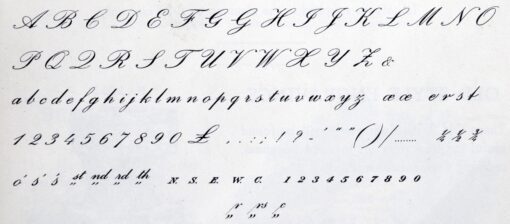 A B C D E F G H I J K L M N O
P Q Q R S T U V W X Y Z &
a b c d e f g h i j k l m n o p q r s t u v w x y z æ œ e r s t
1 2 3 4 5 6 7 8 9 0 £ . , : ; ! ? - ' “ ” ( ) / ........
o' s' s' st nd rd th N. S. E. W. C. 1 2 3 4 5 6 7 8 9 0
r rs c